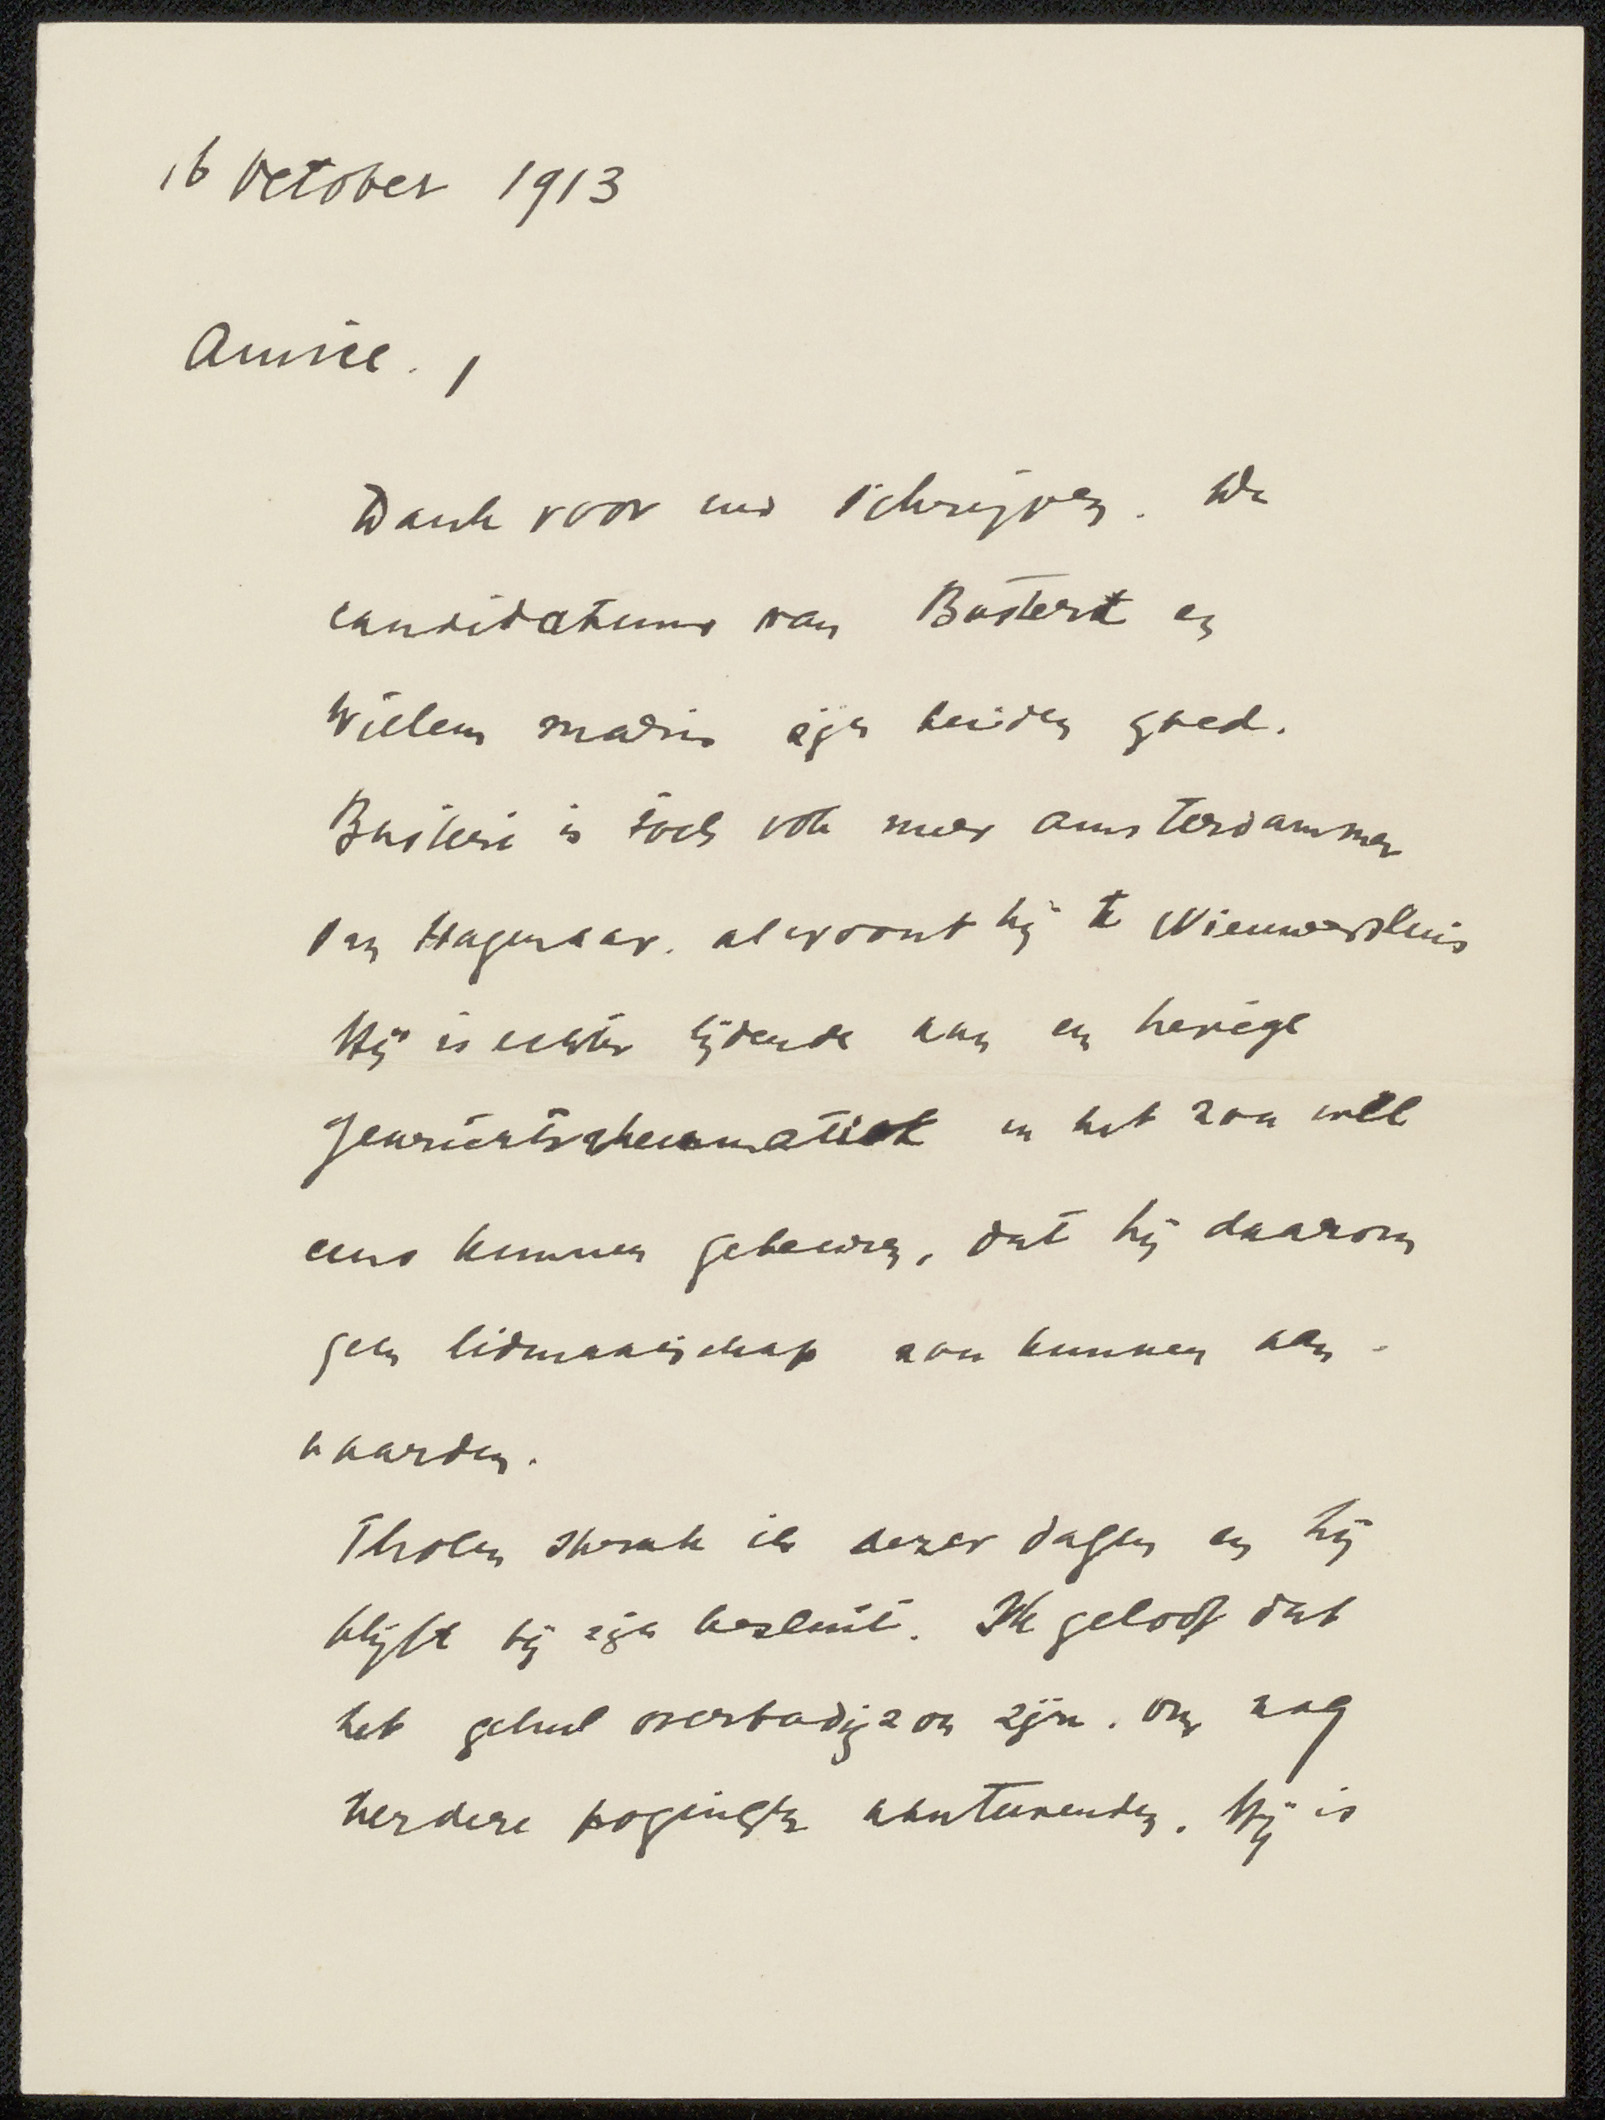 16 October 1913
Amice.,
Dank voor uw schrijven. De
candidaturen van Bastert en
Willem Maris zijn beiden goed.
Bastert is toch ook meer Amsterdammer
dan Hagenaar. al woont hij te Nieuwersluis
Hij is echter lijdende aan en hevige
gewrichtsrheumatiek en het zou wel
eens kunnen gebeuren, dat hij daarom
geen lidmaatschap zou kunnen aan-
vaarden.
Tholen sprak ik dezer dagen en hij
blijft bij zijn besluit. Ik geloof dat
het geheel overbodig zou zijn. om nog
verdere pogingen aantewenden. Hij is